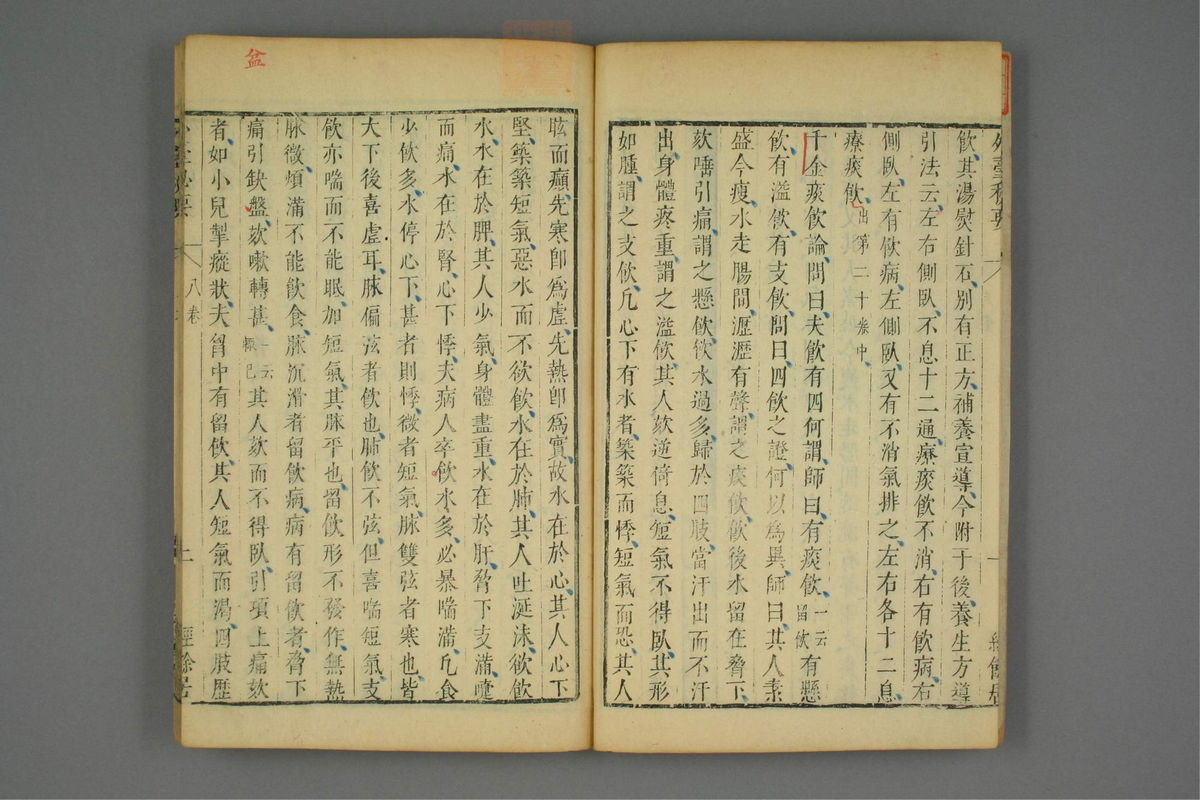 外臺秘要
飲其湯熨針石別有正方補養宣導今附于後養生方導
引法云左右側臥不息十二通療痰飲不消右有飲病右
側臥左有飲病左側臥又有不消氣排之左右各十二息
療痰飲出第二十卷中
千金痰飲論問曰夫飲有四何謂師曰有痰飲一云留飲有懸
飲有溢飲有支飲問曰四飲之證何以為異師曰其人素
盛今瘦水走腸間瀝瀝有聲謂之痰飲飲後水留在脅下
欬唾引痛謂之懸飲飲水過多歸於四肢當汗出而不汗
出身體疼重謂之溢飲其人欬逆倚息短氣不得臥其形
如腫謂之支飲凡心下有水者築築而悸短氣而恐其人
眩而癲先寒即為虛先熱即為實故水在於心其人心下
堅築築短氣惡水而不欲飲水在於肺其人吐涎沫欲飲
水水在於脾其人少氣身體盡重水在於肝脅下支滿嚏
而痛水在於腎心下悸夫病人卒飲水多必暴喘滿凡食
少飲多水停心下甚者則悸微者短氣脉雙弦者寒也皆
大下後喜虛耳脉偏弦者飲也肺飲不弦但喜喘短氣支
飲亦喘而不能眠加短氣其脉平也留飲形不發作無熱
脉微煩滿不能飲食脉沉滑者留飲病病有留飲者脅下
痛引缺盤欬嗽轉甚一云輒已其人欬而不得臥引項上痛欬
者如小兒掣瘲狀夫胷中有留飲其人短氣而渴四肢歷
八卷
經餘居
盆